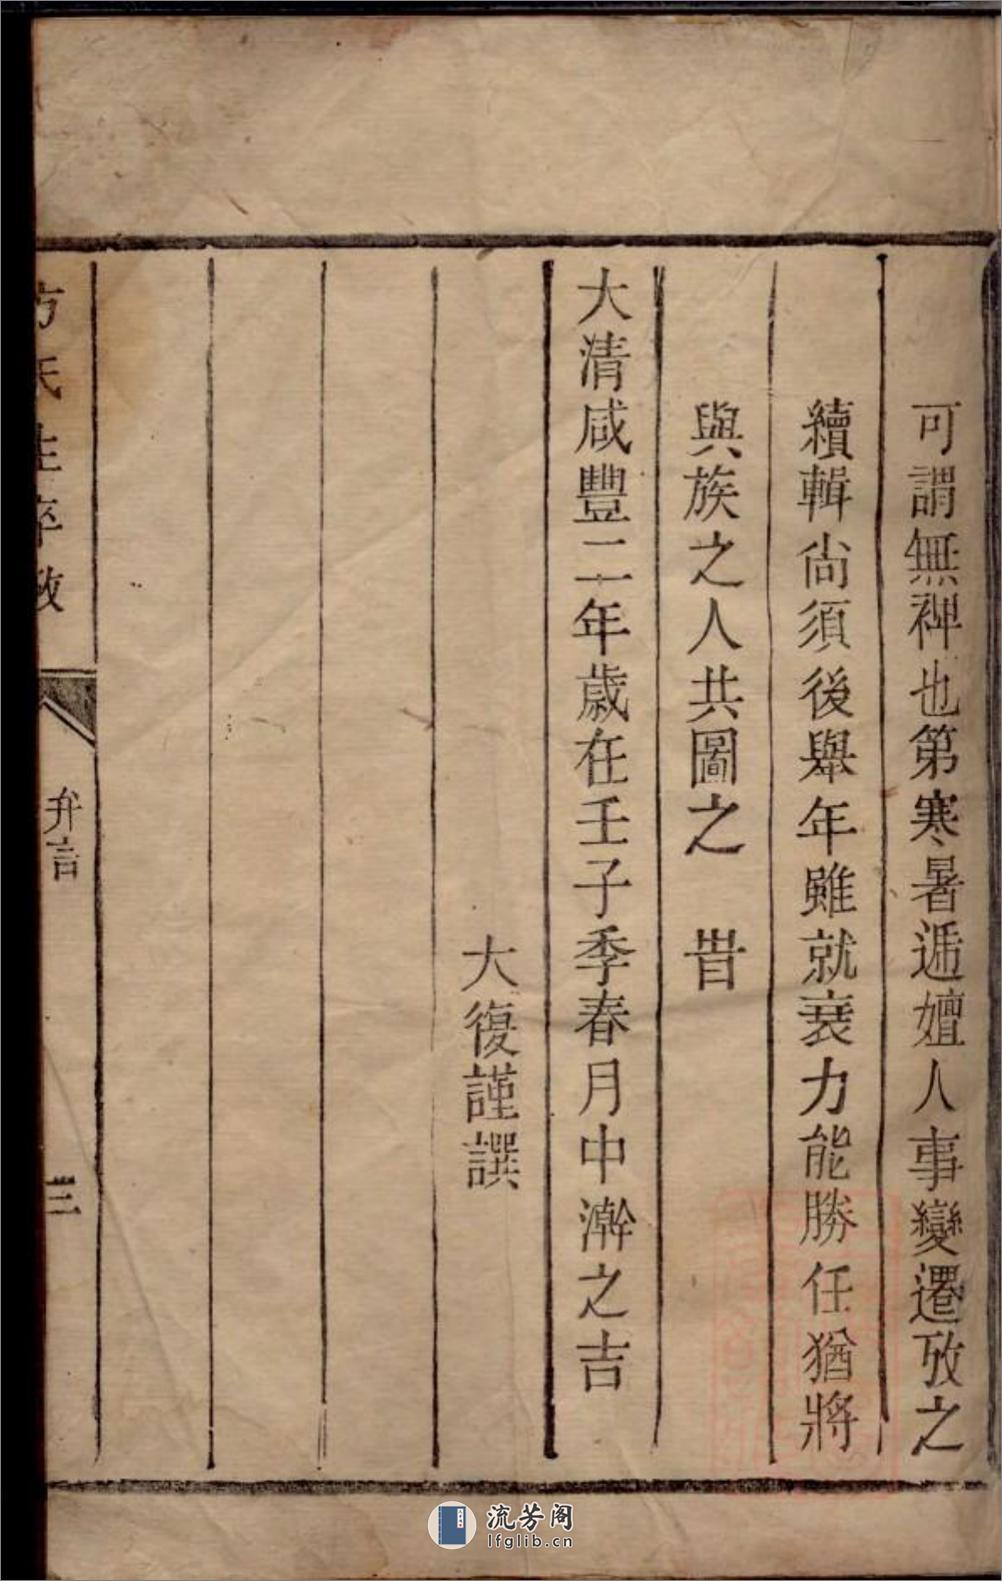 可謂無裨也第寒暑遞嬗人事變遷攷之
續輯尚須後舉年雖就衰力能勝任猶將
與族之人共圖之 旹
大清咸豐二年歲在壬子季春月中澣之吉
大復謹譔
方氏生卒攷
弁言
三
流芳阁
lfglib.cn